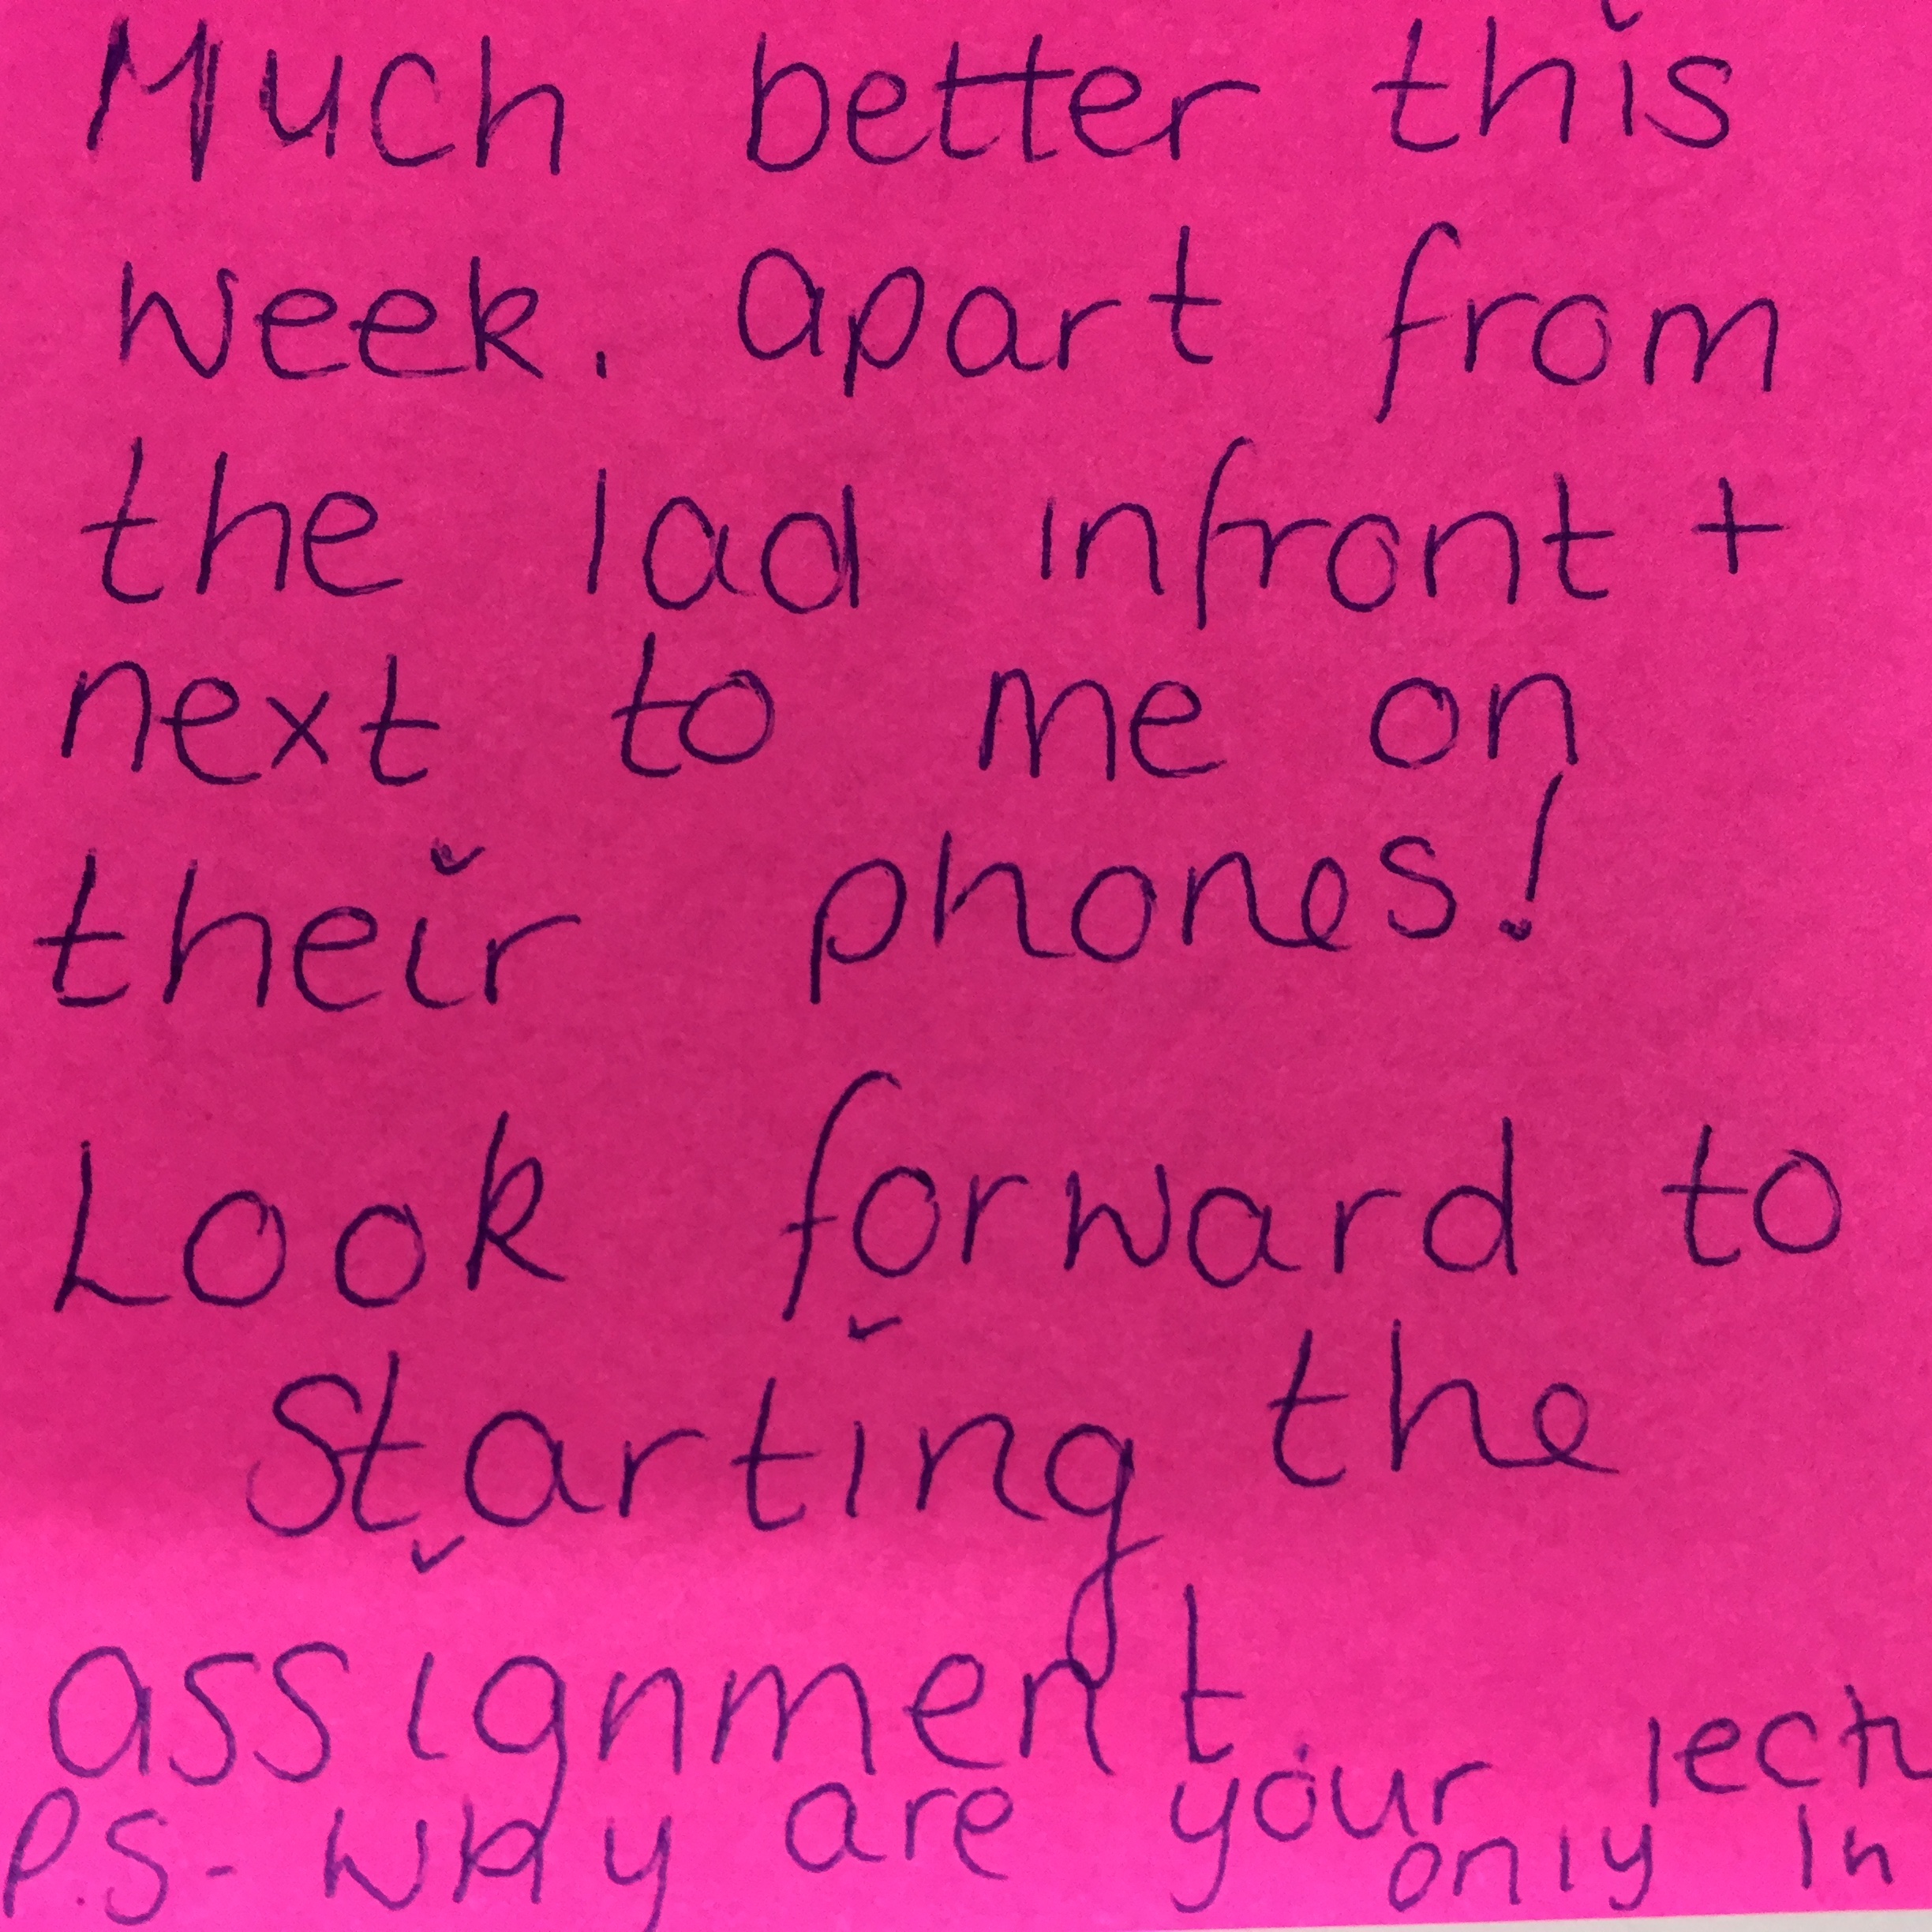 Much better this
week. apart from
the lad infront +
next to me on
their phones!
Look forward to
starting the
assignment.
P.S- Why are your
only in